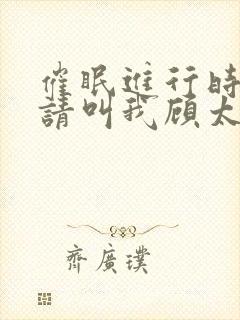 催眠進行時
請叫我顾太
齊廣璞